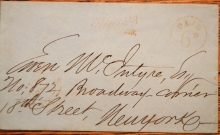 Ewen McIntyre, Esq
No. 872, Broadway corner
18th Street, New York